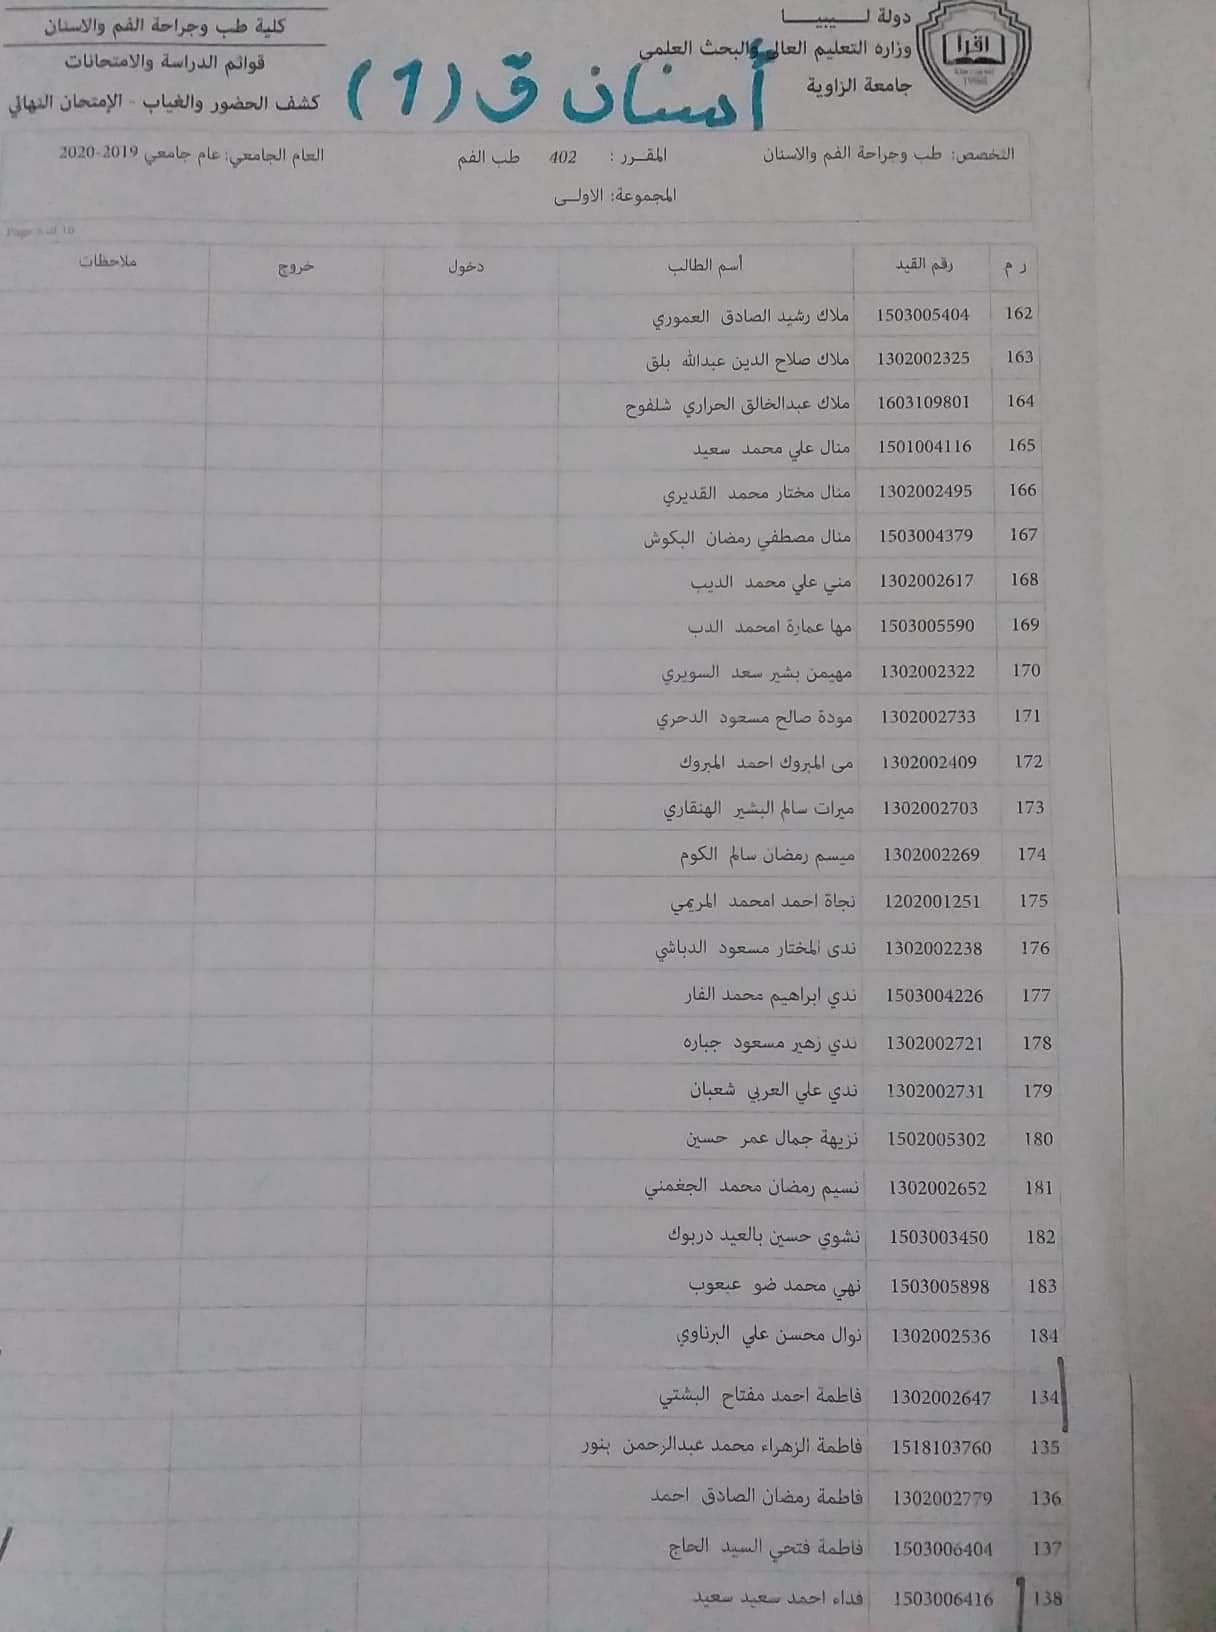 دولة لـــيبيـــا
وزاره التعليم العالي والبحث العلمي
جامعة الزاوية
اقرأ
1988
كلية طب وجراحة الفم والاسنان
قوائم الدراسة والامتحانات
كشف الحضور والغياب - الإمتحان النهائي
أسنان ق (1)
التخصص: طب وجراحة الفم والاسنان المقــرر : 402 طب الفم العام الجامعي: عام جامعي 2019-2020
المجموعة: الاولــى
ر م رقم القيد أسم الطالب دخول خروج ملاحظات
162 1503005404 ملاك رشيد الصادق العموري
163 1302002325 ملاك صلاح الدين عبدالله بلق
164 1603109801 ملاك عبدالخالق الحراري شلفوح
165 1501004116 منال علي محمد سعيد
166 1302002495 منال مختار محمد القديري
167 1503004379 منال مصطفي رمضان البكوش
168 1302002617 مني علي محمد الديب
169 1503005590 مها عمارة امحمد الدب
170 1302002322 مهيمن بشير سعد السويري
171 1302002733 مودة صالح مسعود الدحري
172 1302002409 مى المبروك احمد المبروك
173 1302002703 ميرات سالم البشير الهنقاري
174 1302002269 ميسم رمضان سالم الكوم
175 1202001251 نجاة احمد امحمد المريمي
176 1302002238 ندى المختار مسعود الدباشي
177 1503004226 ندي ابراهيم محمد الفار
178 1302002721 ندي زهير مسعود جباره
179 1302002731 ندي علي العربي شعبان
180 1502005302 نزيهة جمال عمر حسين
181 1302002652 نسيم رمضان محمد الجغمني
182 1503003450 نشوي حسين بالعيد دربوك
183 1503005898 نهي محمد ضو عبعوب
184 1302002536 نوال محسن علي البرناوي
134 1302002647 فاطمة احمد مفتاح البشتي
135 1518103760 فاطمة الزهراء محمد عبدالرحمن بنور
136 1302002779 فاطمة رمضان الصادق احمد
137 1503006404 فاطمة فتحي السيد الحاج
138 1503006416 فداء احمد سعيد سعيد